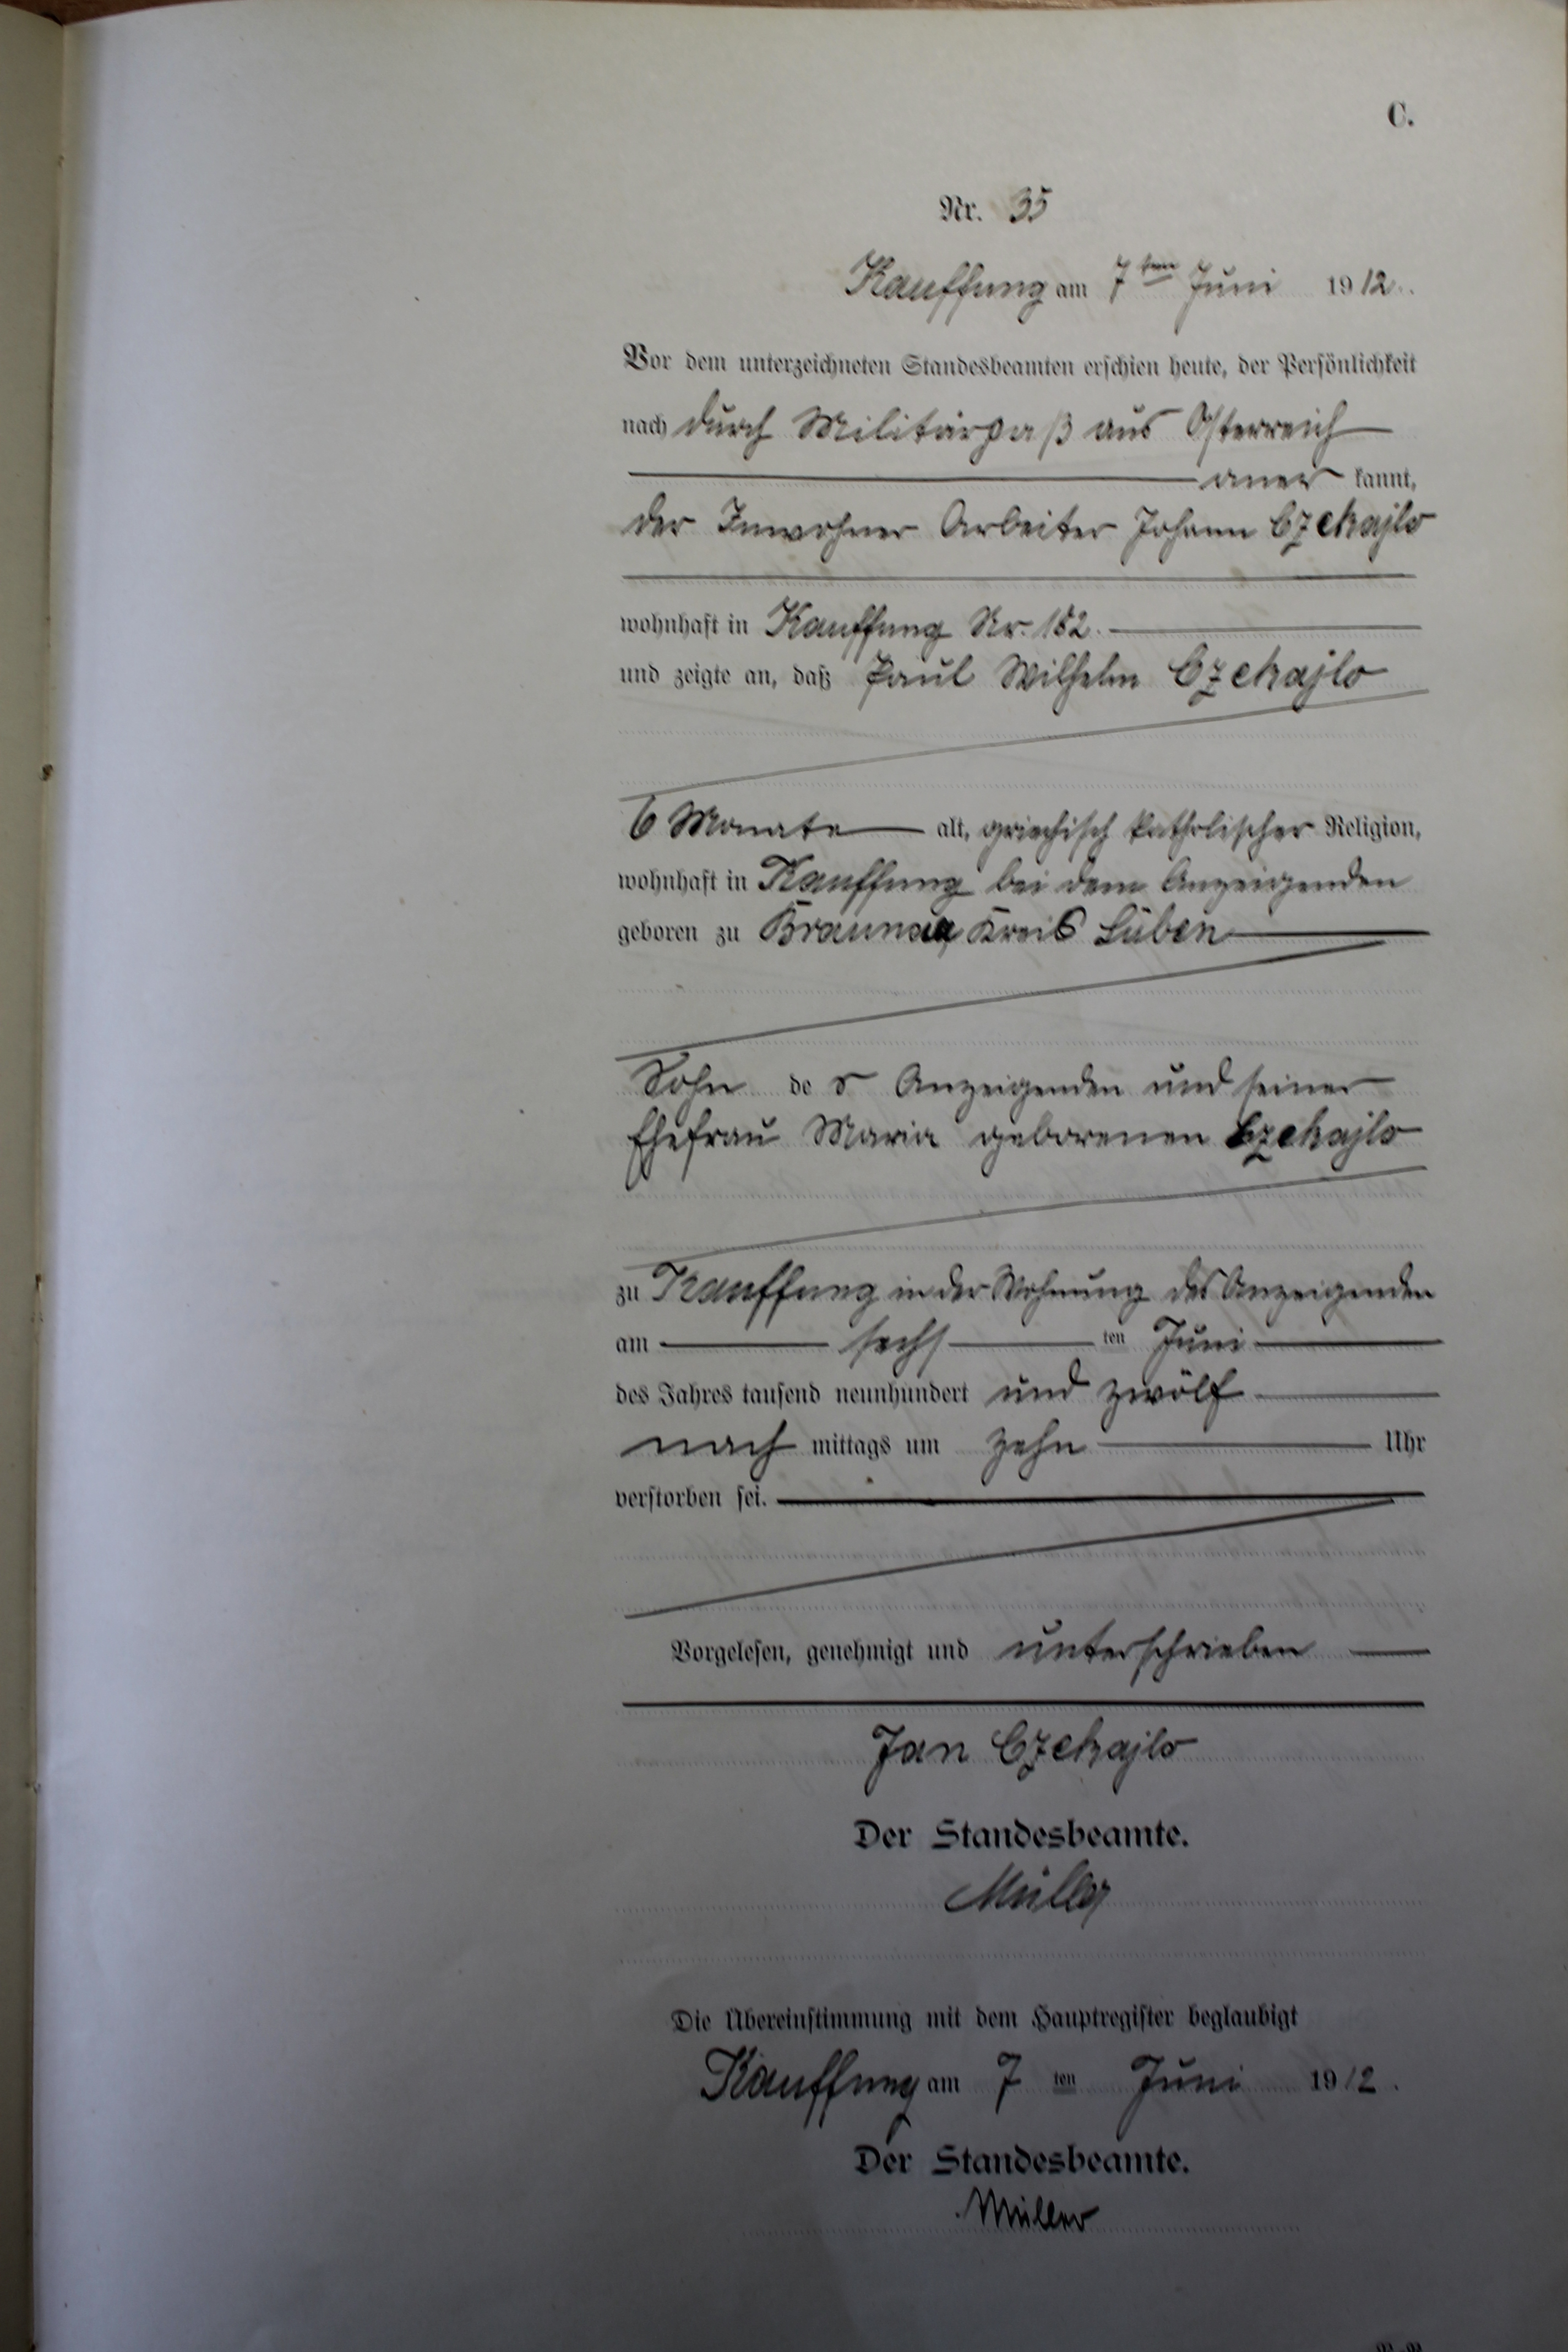 C.
Nr. 35
Kauffung am 7ten Juni 1912.
Vor dem unterzeichneten Standesbeamten erschien heute, der Persönlichkeit
nach durch Militärpaß aus Österreich
aner kannt,
der Inwohner Arbeiter Johann Czekajlo
wohnhaft in Kauffung Nr. 182.
und zeigte an, daß Paul Wilhelm Czekajlo
6 Monate alt, griechisch katholischer Religion,
wohnhaft in Kauffung bei dem Anzeigenden
geboren zu Braunau Kreis Lüben
Sohn des Anzeigenden und seiner
Ehefrau Maria geborenen Czekajlo
zu Kauffung in der Wohnung des Anzeigenden
am sechs ten Juni
des Jahres tausend neunhundert und zwölf
nach mittags um zehn Uhr
verstorben sei.
Vorgelesen, genehmigt und unterschrieben
Jan Czekajlo
Der Standesbeamte.
Müller
Die Übereinstimmung mit dem Hauptregister beglaubigt
Kauffung am 7 ten Juni 1912.
Der Standesbeamte.
Müller